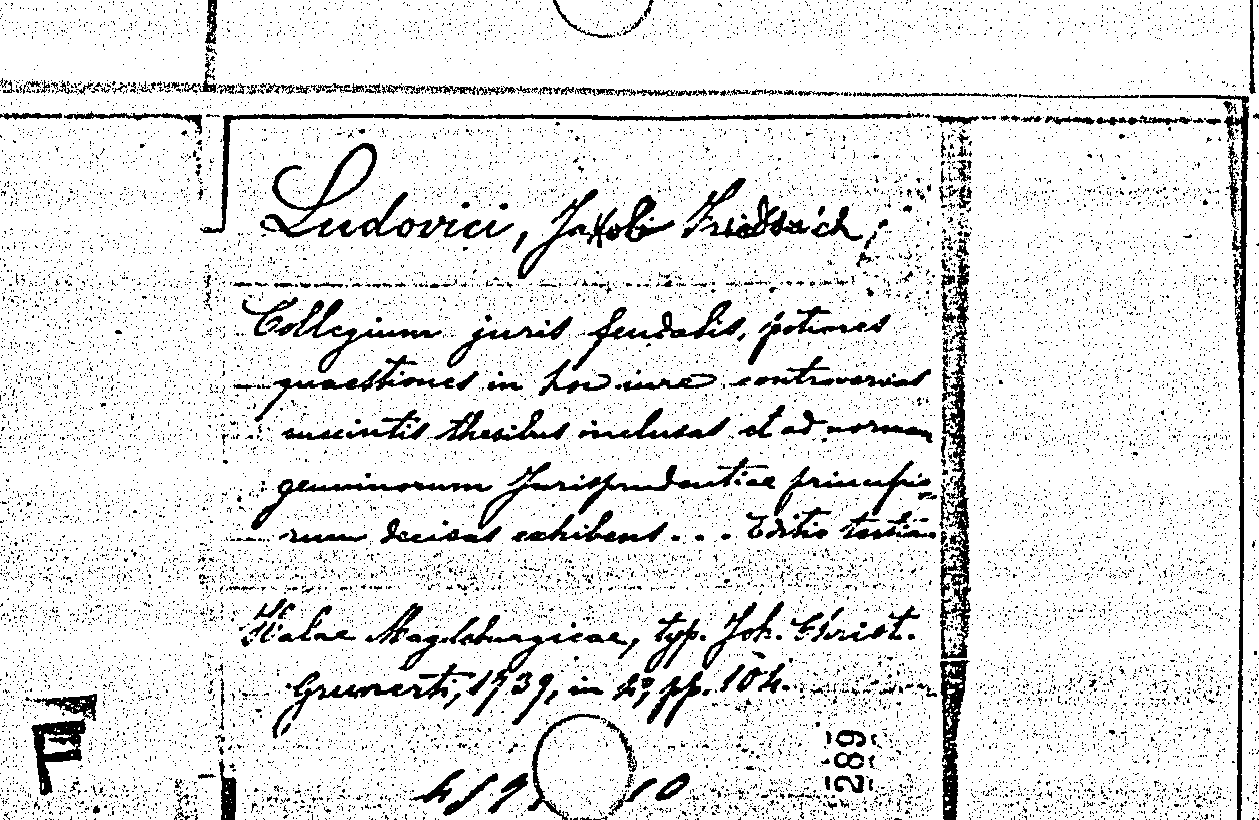 Ludovici, Jakob Friedrich,
Collegium juris feudalis, potiores
quaestiones in hoc iure controversas
succintis thesibus inclusas et ad norman
genuinorum Jurisprudentiae principio-
rum decisas exhibens... Editio tertia.
Halae Magdeburgicae, typ. Joh. Christ.
Grunerti, 1739, in 4º, pp. 104.
289
F